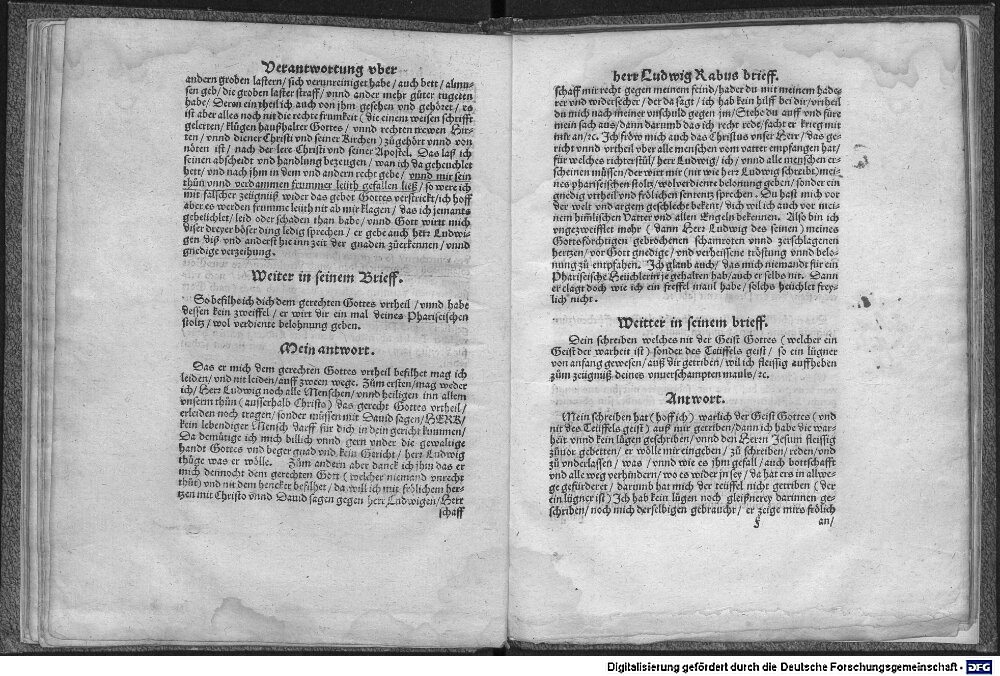 Verantwortung vber
andern groben lastern/ sich verunreiniget habe/ auch bett/ almů-
sen geb/ die groben laster straff/ vnnd ander mehr gůter tugeten
habe/ Deren ein theil ich auch von jhm gesehen vnd gehöret/ es
ist aber alles noch nit die rechte frumkeit (die einem weisen schrifft
gelerten/ klůgen haußhalter Gottes/ vnnd rechten trewen Hir-
ten/ vnnd diener Christi vnd seiner Kirchen) zůgehört vnnd von
nöten ist/ nach der lere Christi vnd seiner Apostel. Das laß ich
seinen abscheidt vnd handlung bezeugen/ wan ich da geheuchlet
hett/ vnnd nach jhm in dem vnd andern recht gebe/ vnnd mir sein
thůn vnnd verdammen frummer leüth gefallen ließ/ so were ich
mit falscher zeügnüß wider das gebot Gottes verstrickt/ ich hoff
aber es werden frumme leüth nit ab mir klagen/ das ich jemants
geheüchlet/ leid oder schaden than habe/ vnnd Gott wirt mich
diser dreyer böser ding ledig sprechen/ er gebe auch herr Ludwi-
gen diß vnd anderst hie inn zeit der gnaden zůerkennen/ vnnd
gnedige verzeihung.
Weiter in seinem Brieff.
So befilhe ich dich dem gerechten Gottes vrtheil/ vnnd habe
dessen kein zweiffel/ er wirt dir ein mal deines Phariseischen
stoltz/ wol verdiente belohnung geben.
Mein antwort.
Das er mich dem gerechten Gottes vrtheil befilhet mag ich
leiden/ vnd nit leiden/ auff zween wege. Zům ersten/ mag weder
ich/ Herr Ludwig noch alle Menschen/ vnnd heiligen inn allem
vnserm thůn (ausserhalb Christo) das gerecht Gottes vrtheil/
erleiden noch tragen/ sonder můssen mit Dauid sagen/ HERR/
kein lebendiger Mensch darff für dich in dein gericht kummen/
Da demůtige ich mich billich vnnd gern vnder die gewaltige
handt Gottes vnd beger gnad vnd kein Gericht/ herr Ludwig
thůge was er wölle. Zům andern aber danck ich jhm das er
mich dennocht dem gerechten Gott (welcher niemand vnrecht
thůt) vnd nit dem hencker befilhet/ da will ich mit frölichem her-
tzen mit Christo vnnd Dauid sagen gegen herr Ludwigen/ Herr
schaff
herr Ludwig Rabus brieff.
schaff mir recht gegen meinem feind/ hader du mit meinem hade-
rer vnd widersecher/ der da sagt/ ich hab kein hilff bei dir/ vrtheil
du mich nach meiner vnschuld gegen jm/ Stehe du auff vnd fůre
mein sach aus/ dann darumb das ich recht rede/ facht er krieg mit
mir an/ ꝛc. Ich fröw mich auch das Christus vnser Herr/ das ge-
richt vnnd vrtheil vber alle menschen vom vatter empfangen hat/
für welches richterstůl/ herr Ludwig/ ich/ vnnd alle menschen er-
scheinen müssen/ der wirt mir (nit wie herr Ludwig schreibt) mei-
nes phariseischen stoltz/ wolverdiente belonung geben/ sonder ein
gnedig vrtheil vnd frölichen sententz sprechen. Du hast mich vor
der welt vnd argem geschlecht bekent/ dich wil ich auch vor mei-
nem him̃lischen Vatter vnd allen Engeln bekennen. Also bin ich
vngezweifflet mehr (dann Herr Ludwig des seinen) meines
Gottsförchtigen gebrochenen schamroten vnnd zerschlagenen
hertzen/ vor Gott gnedige/ vnd verheissene tröstung vnnd belo-
nung zů entpfahen. Ich glaub auch/ das mich niemandt für ein
Phariseische Heüchlerin je gehalten hab/ auch er selbs nit. Dann
er clagt doch wie ich ein freffel maul habe/ solchs heüchlet frey-
lich nicht.
Weitter in seinem brieff.
Dein schreiben welches nit der Geist Gottes (welcher ein
Geist der warheit ist) sonder des Teüffels geist/ so ein lügner
von anfang gewesen/ auß dir getriben/ wil ich fleissig auffheben
zům zeügnüß deines vnuerschampten mauls/ ꝛc.
Antwort.
Mein schreiben hat (hoff ich) warlich der Geist Gottes (vnd
nit des Teüffels geist) auß mir getriben/ dann ich habe die war-
heit vnnd kein lügen geschriben/ vnnd den Herrn Jesum fleissig
zůuor gebetten/ er wölle mir eingeben/ zů schreiben/ reden/ vnd
zů vnderlassen/ was/ vnnd wie es jhm gefall/ auch bottschafft
vnd alle weg verhindern/ wo es wider jn sey/ da hat ers in allwe-
ge gefürderet/ darumb hat mich der teüffel nicht getriben (der
ein lügner ist) Ich hab kein lügen noch gleißnerey darinnen ge-
schriben/ noch mich derselbigen gebraucht/ er zeige mirs frölich
an/
Digitalisierung gefördert durch die Deutsche Forschungsgemeinschaft - DFG